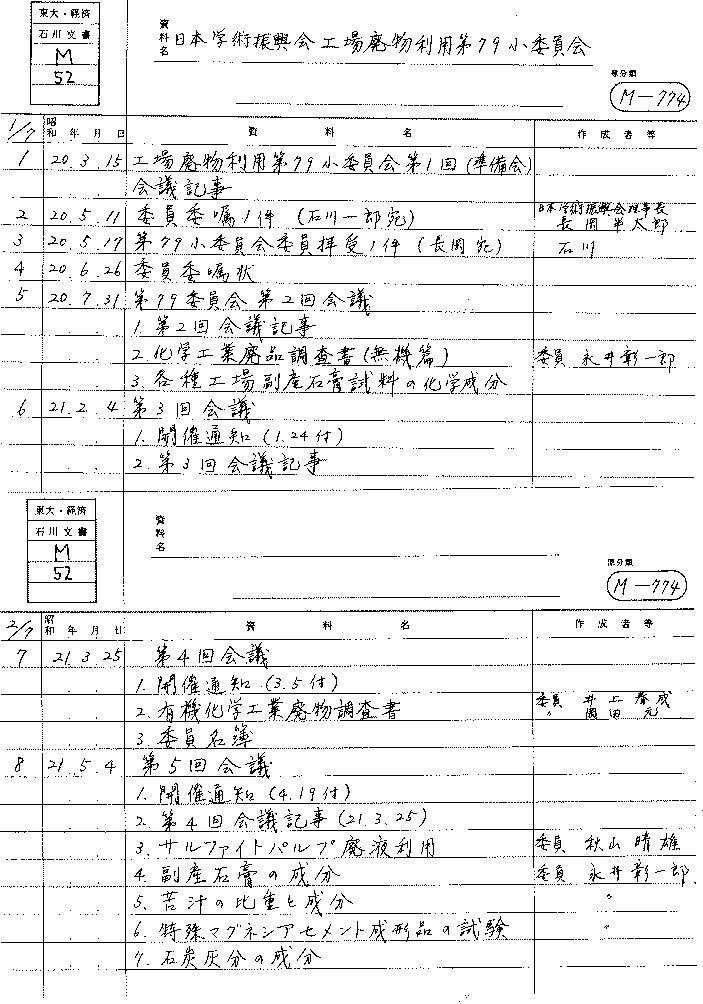 東大・経済
石川文書
M
52
資料名 日本学術振興会工場廃物利用第79小委員会
原分類
M-774
1/7 昭和 年 月 日 資 料 名 作成者等
1 20.3.15 工場廃物利用第79小委員会第1回(準備会)
会議記事
2 20.5.11 委員委嘱1件 (石川一郎宛) 日本学術振興会理事長 長岡半太郎
3 20.5.17 第79小委員会委員拝受1件 (長岡宛) 石川
4 20.6.26 委員委嘱状
5 20.7.31 第79委員会 第2回会議
1. 第2回会議記事
2. 化学工業廃品調査書(無機篇) 委員 永井彰一郎
3. 各種工場副産石膏試料の化学成分
6 21.2.4 第3回会議
1. 開催通知 (1.24付)
2. 第3回会議記事
東大・経済
石川文書
M
52
資料名
原分類
M-774
2/7 昭和 年 月 日 資 料 名 作成者等
7 21.3.25 第4回会議
1. 開催通知 (3.5付)
2. 有機化学工業廃物調査書 委員 井上春成
〃 岡田 元
3. 委員名簿
8 21.5.4 第5回会議
1. 開催通知 (4.19付)
2. 第4回会議記事 (21.3.25)
3. サルファイトパルプ廃液利用 委員 秋山晴雄
4. 副産石膏の成分 委員 永井彰一郎
5. 苦汁の比重と成分 〃
6. 特殊マグネシアセメント成形品の試験 〃
7. 石炭灰分の成分